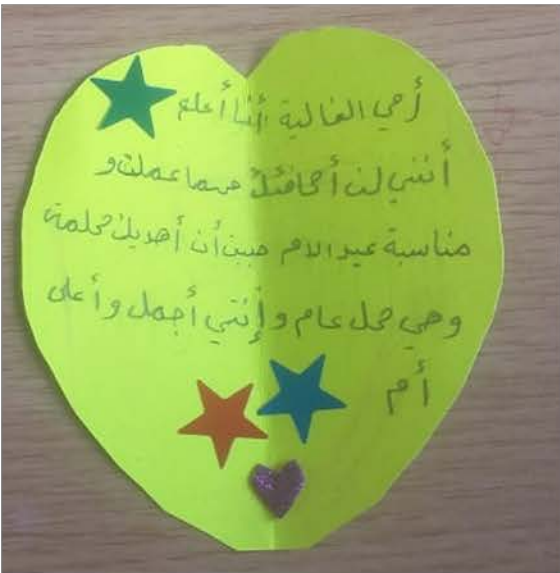 أمي الغالية أنا أعلم
أنني لن أكافئك مهما عملت و
مناسبة عيد الام حبيت أن أهديك كلمة
وهي كل عام وإنتي أجمل وأغلى
أم